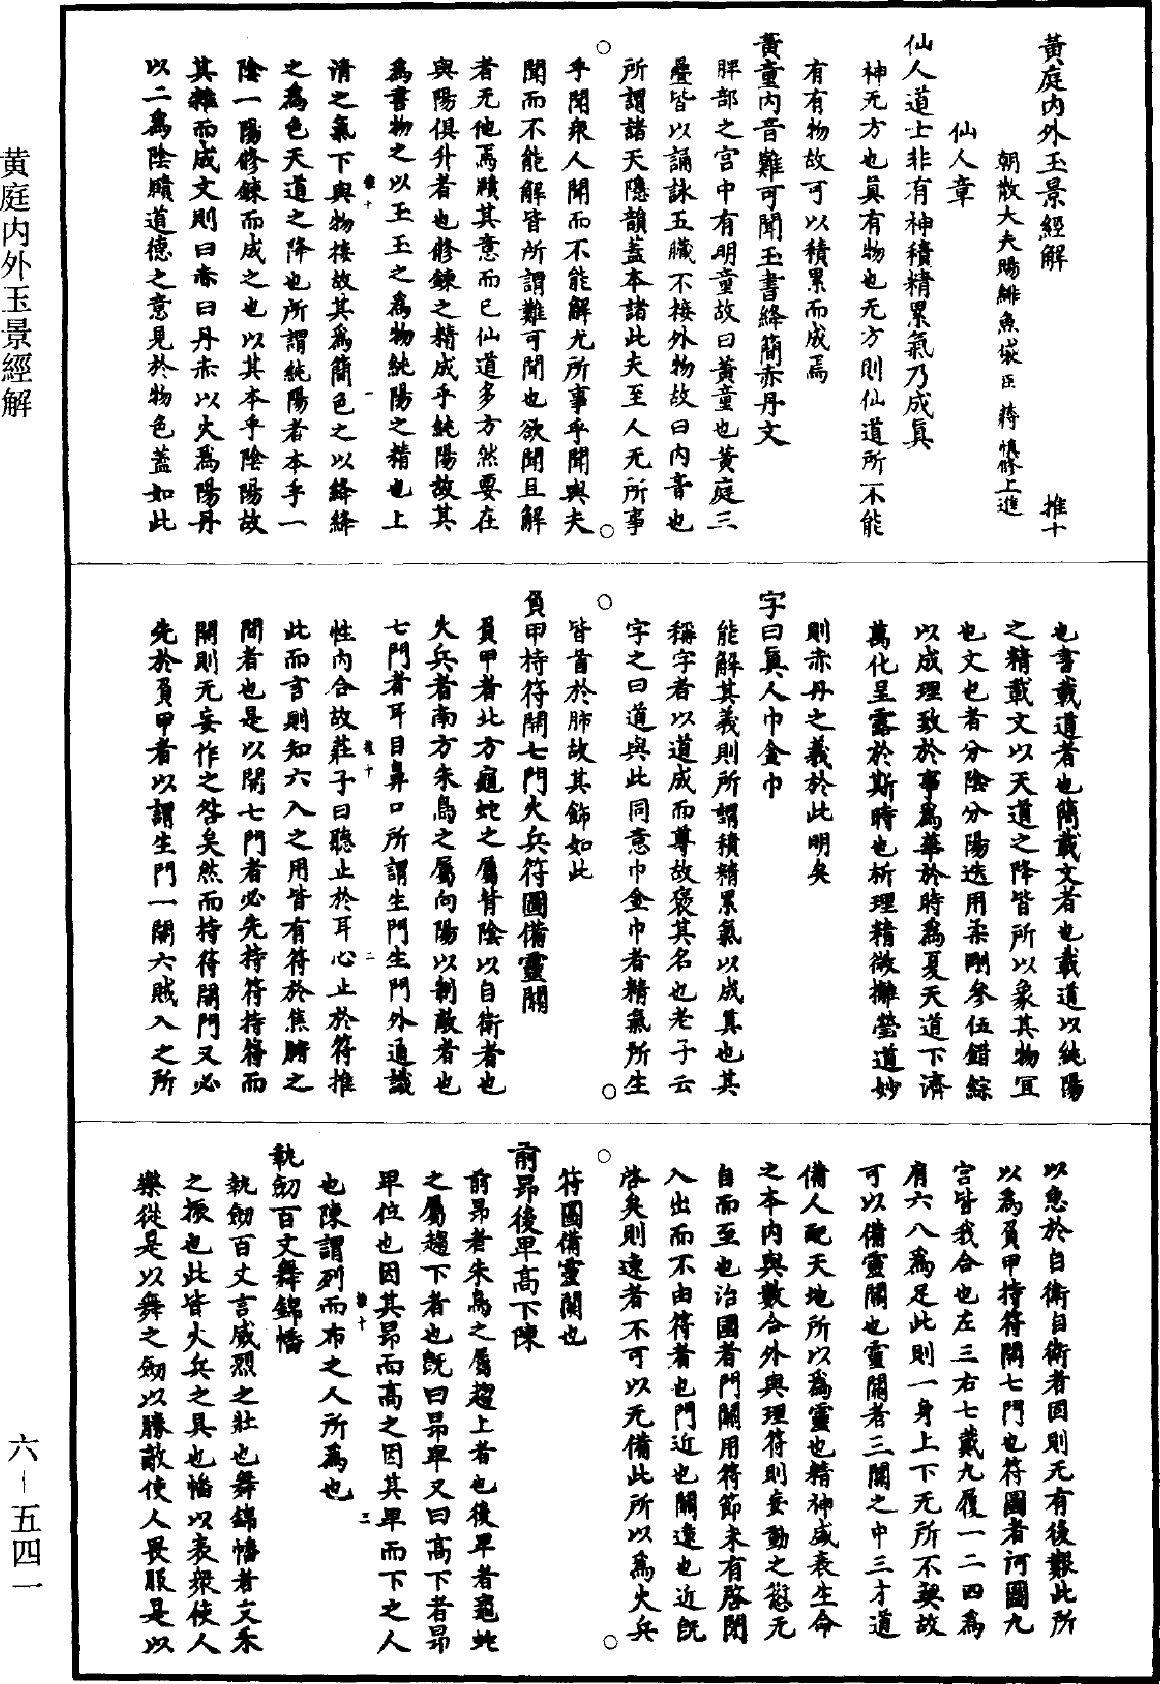 黃庭內外玉景經解
推十
朝散大夫賜緋魚袋臣蔣慎修上進
仙人章
仙人道士非有神積精累氣乃成真
神无方也真有物也无方則仙道所不能
有有物故可以積累而成焉
黃童內音難可聞玉書絳簡赤丹文
脾部之宮中有明童故曰黃童也黃庭三
疊皆以誦詠五臟不接外物故曰內音也
所謂諸天隱韻蓋本諸此夫至人无所事
乎聞衆人聞而不能解尤所事乎聞與夫
聞而不能解皆所謂難可聞也欲聞且解
者无他焉賾其意而已仙道多方然要在
與陽俱升者也修鍊之精成乎純陽故其
為書物之以玉玉之為物純陽之精也上
推十 一
清之氣下與物接故其為簡色之以絳絳
之為色天道之降也所謂純陽者本乎一
陰一陽修鍊而成之也以其本乎陰陽故
其雜而成文則曰赤曰丹赤以火為陽丹
以二為陰賾道德之意見於物色蓋如此
也書載道者也簡載文者也載道以純陽
之精載文以天道之降皆所以象其物宜
也文也者分陰分陽迭用柔剛參伍錯綜
以成理致於事為華於時為夏天道下濟
萬化呈露於斯時也析理精微摛瑩道妙
則赤丹之義於此明矣
字曰真人巾金巾
能解其義則所謂積精累氣以成真也其
稱字者以道成而尊故褒其名也老子云
字之曰道與此同意巾金巾者精氣所生
皆首於肺故其飾如此
負甲持符開七門火兵符圖備靈關
負甲者北方龜蛇之屬背陰以自衛者也
火兵者南方朱鳥之屬向陽以制敵者也
七門者耳目鼻口所謂生門生門外通識
推十 二
性內合故莊子曰聽止於耳心止於符推
此而言則知六入之用皆有符於焦腑之
間者也是以開七門者必先持符持符而
開則无妄作之咎矣然而持符開門又必
先於負甲者以謂生門一開六賊入之所
以患於自衛自衛者固則无有後艱此所
以為負甲持符開七門也符圖者河圖九
宮皆我合也左三右七戴九履一二四為
肩六八為足此則一身上下无所不契故
可以備靈關也靈關者三關之中三才道
備人配天地所以為靈也精神盛衰生命
之本內與數合外與理符則妄動之愆无
自而至也治國者門關用符節未有啓閉
入出而不由符者也門近也關遠也近既
啓矣則遠者不可以无備此所以為火兵
符圖備靈關也
前昂後卑高下陳
前昂者朱鳥之屬趨上者也後卑者龜蛇
之屬趨下者也既曰昂卑又曰高下者昂
卑位也因其昂而高之因其卑而下之人
推十 三
也陳謂列而布之人所為也
執劒百丈舞錦幡
執劒百丈言威烈之壯也舞錦幡者文禾
之振也此皆火兵之具也幡以表衆使人
樂從是以舞之劒以勝敵使人畏服是以
黃庭內外玉景經解
六-五四一